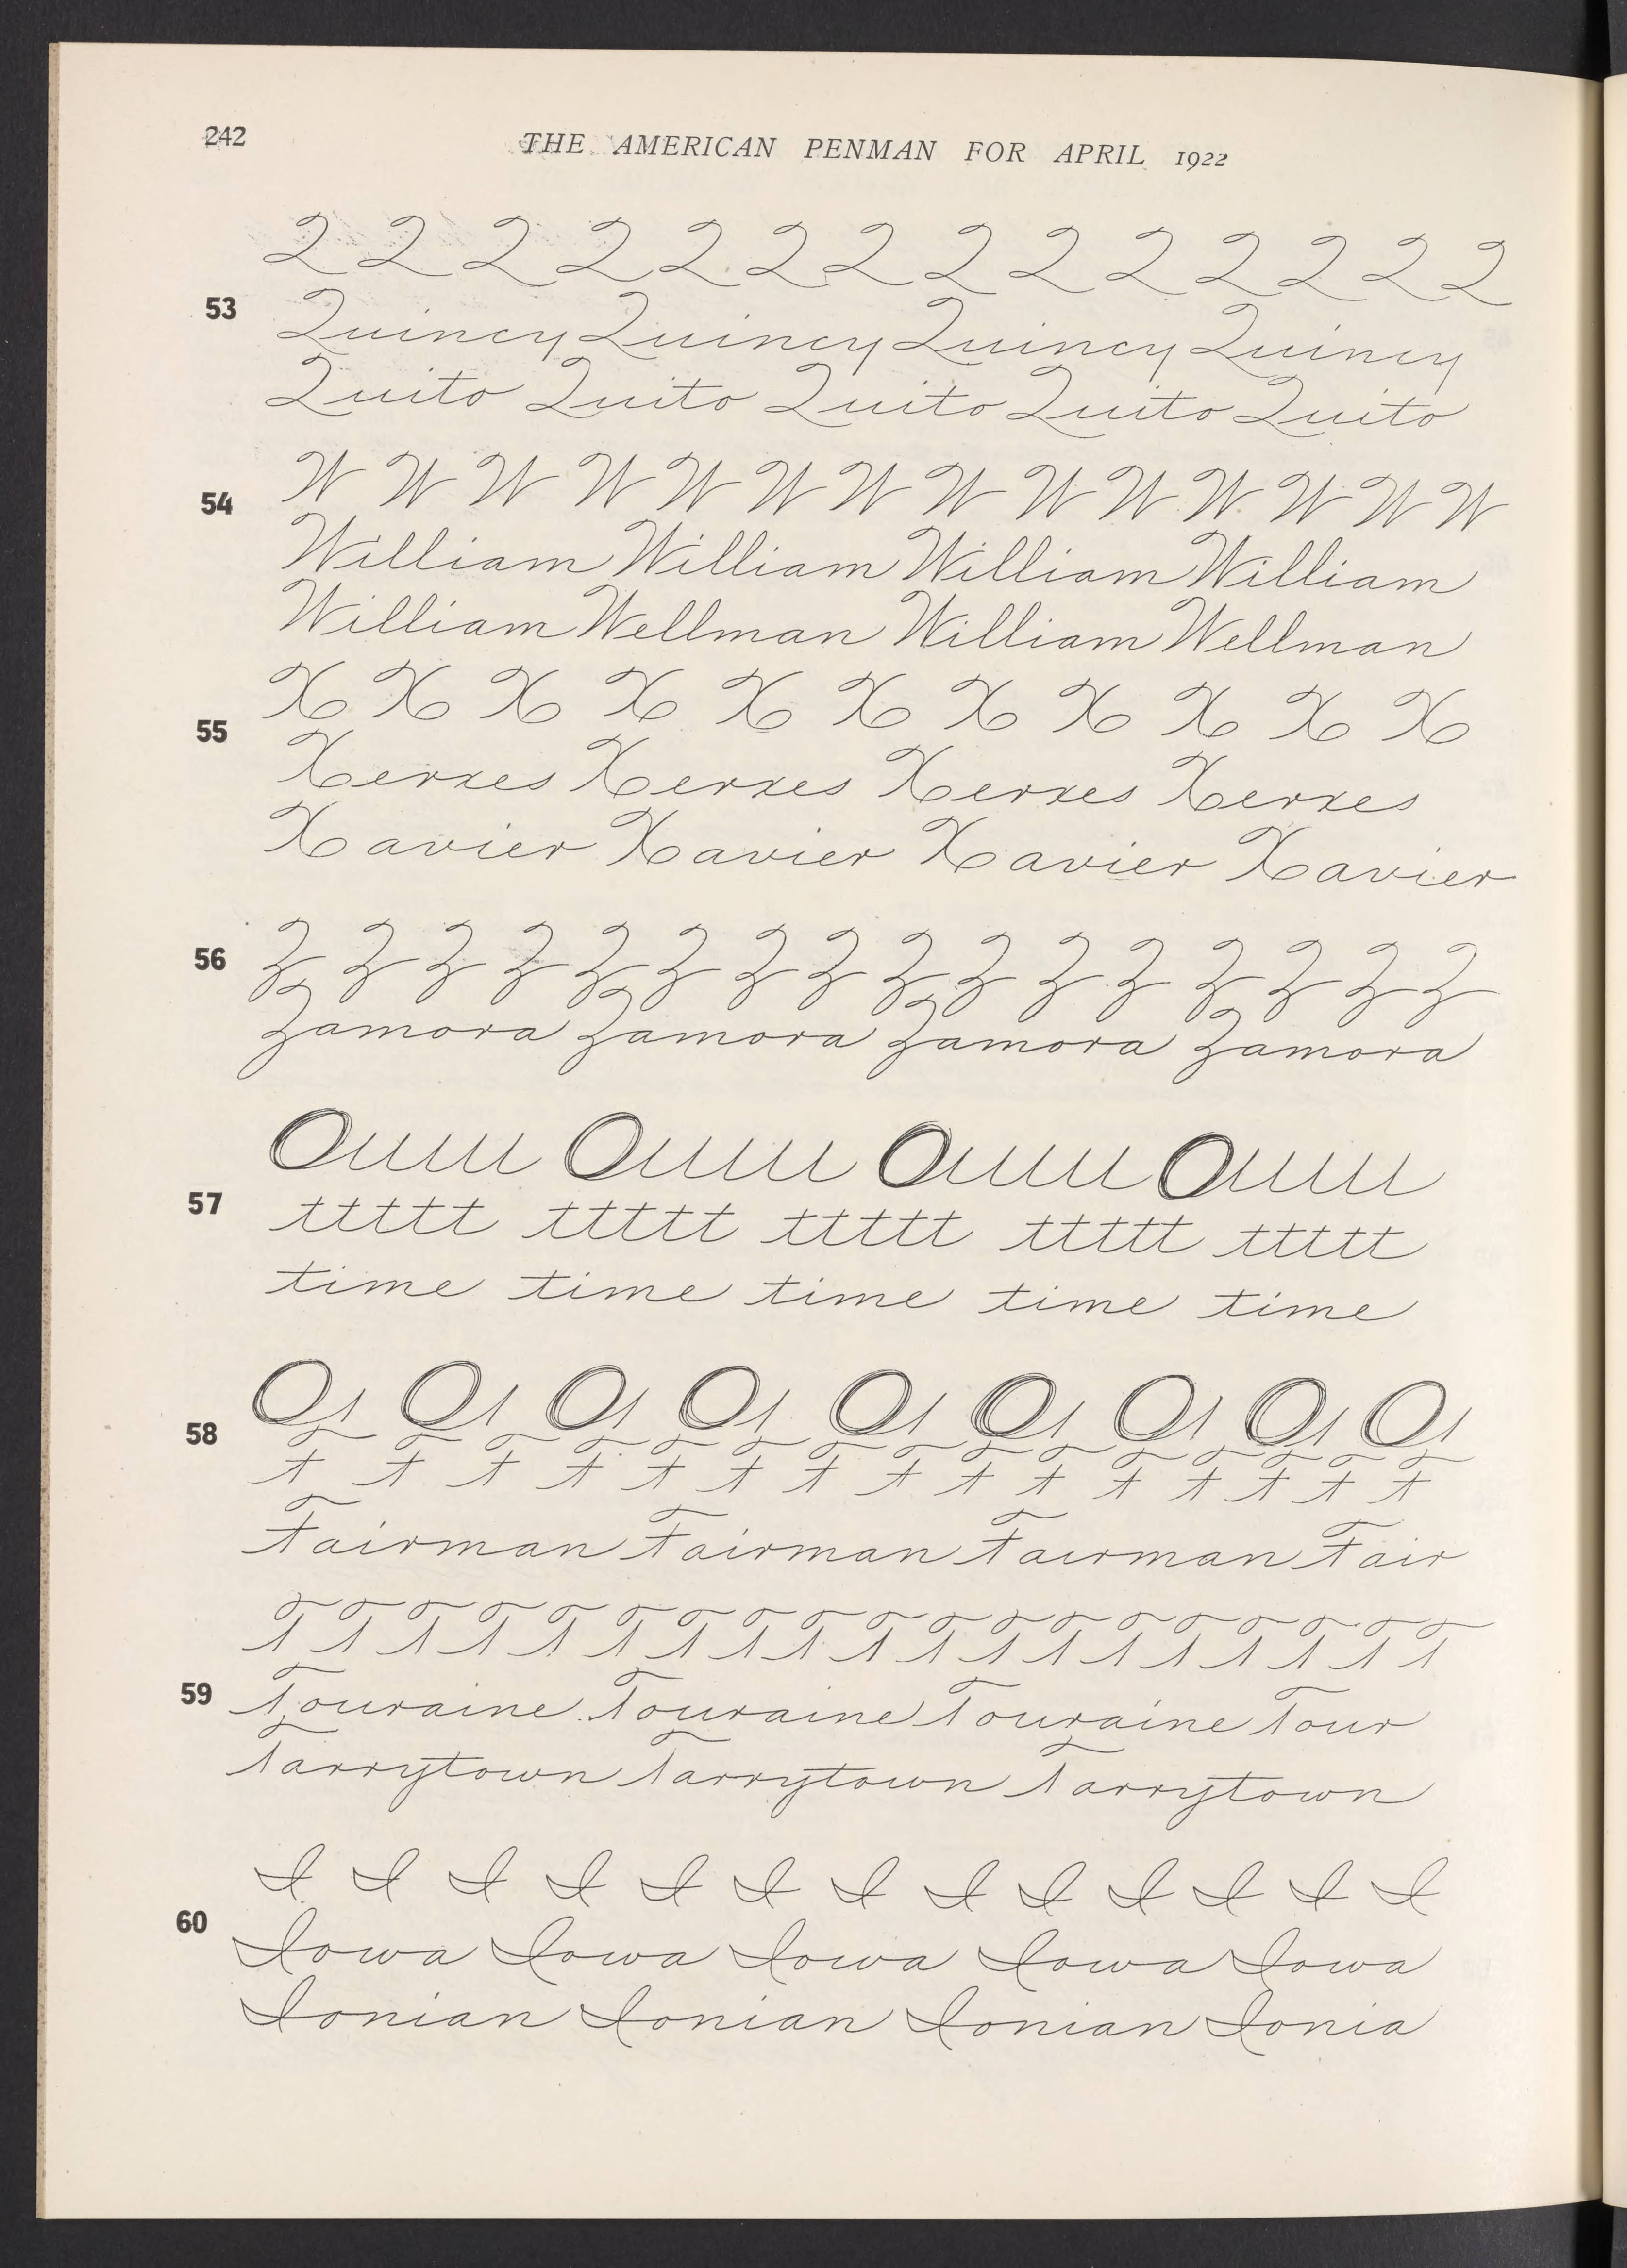 242
THE AMERICAN PENMAN FOR APRIL 1922
Q Q Q Q Q Q Q Q Q Q Q Q Q Q
53
Quincy Quincy Quincy Quincy
Quito Quito Quito Quito Quito
W W W W W W W W W W W W W W
54
William William William William
William Wellman William Wellman
X X X X X X X X X X X
55
Xerxes Xerxes Xerxes Xerxes
Xavier Xavier Xavier Xavier
56
Z Z Z Z Z Z Z Z Z Z Z Z Z Z Z Z
Zamora Zamora Zamora Zamora
57
ttttt ttttt ttttt ttttt ttttt
time time time time time
58
F F F F F F F F F F F F F F F
Fairman Fairman Fairman Fair
T T T T T T T T T T T T T T T T T T
59
Touraine Touraine Touraine Tour
Tarrytown Tarrytown Tarrytown
I I I I I I I I I I I I I
60
Iowa Iowa Iowa Iowa Iowa
Ionian Ionian Ionian Ionia